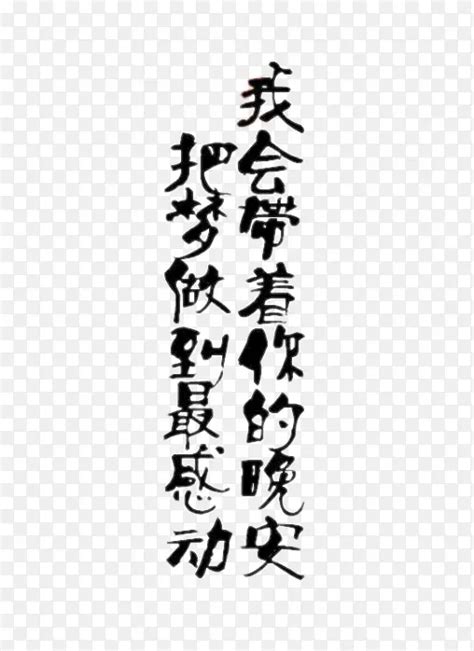 我会带着你的晚安
把梦做到最感动